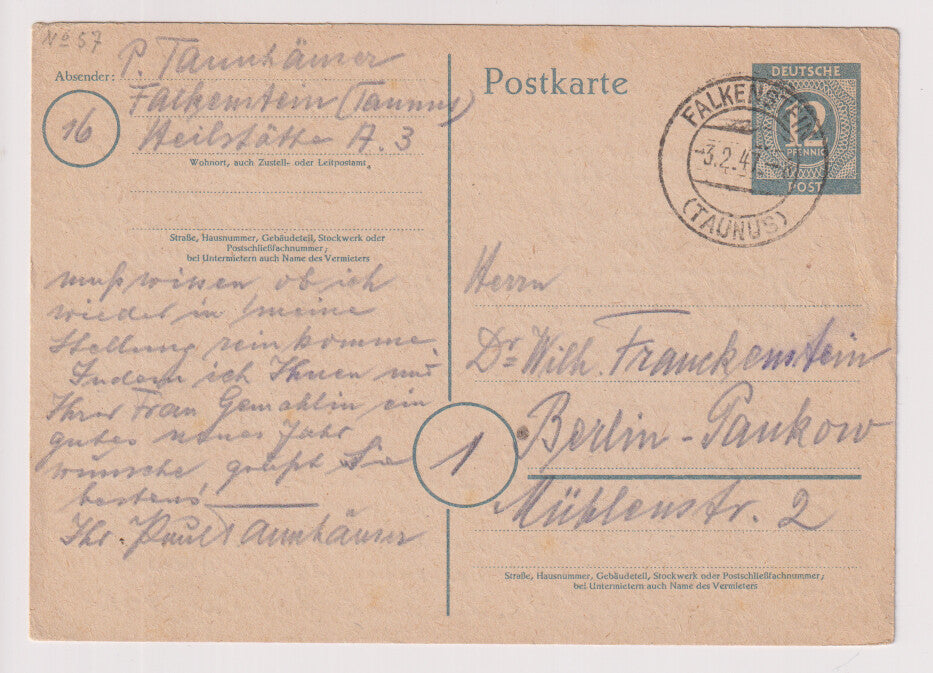 No 57
Absender: P. Tannhäuser
Falkenstein (Taunus)
16
Heilstätte A. 3
Wohnort, auch Zustell- oder Leitpostamt
Straße, Hausnummer, Gebäudeteil, Stockwerk oder
Postschließfachnummer;
bei Untermietern auch Name des Vermieters
muß wissen ob ich
wieder in meine
Stellung reinkomme
Indem ich Ihnen und
Ihrer Frau Gemahlin ein
gutes neues Jahr
wünsche grüßt Sie
bestens
Ihr Paul Tannhäuser
Postkarte
DEUTSCHE
12
PFENNIG
POST
FALKENSTEIN
-3.2.47
(TAUNUS)
Herrn
Dr. Wilh. Franckenstein
1
Berlin-Pankow
Mühlenstr. 2
Straße, Hausnummer, Gebäudeteil, Stockwerk oder Postschließfachnummer;
bei Untermietern auch Name des Vermieters